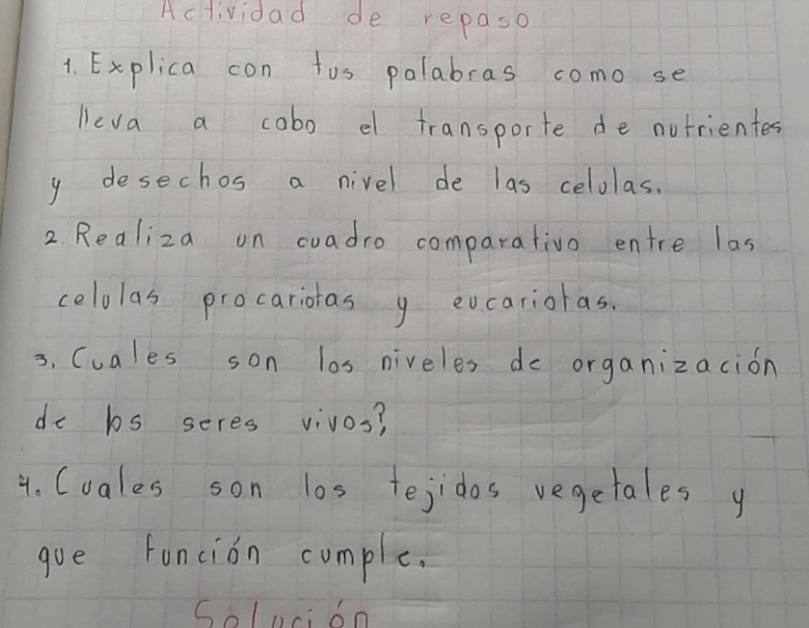 Actividad de repaso
1. Explica con tus palabras como se
lleva a cabo el transporte de nutrientes
y desechos a nivel de las celulas.
2. Realiza un cuadro comparativo entre las
celulas procariotas y eucariotas.
3. Cuales son los niveles de organización
de los seres vivos?
4. Cuales son los tejidos vegetales y
que función cumple.
Solución